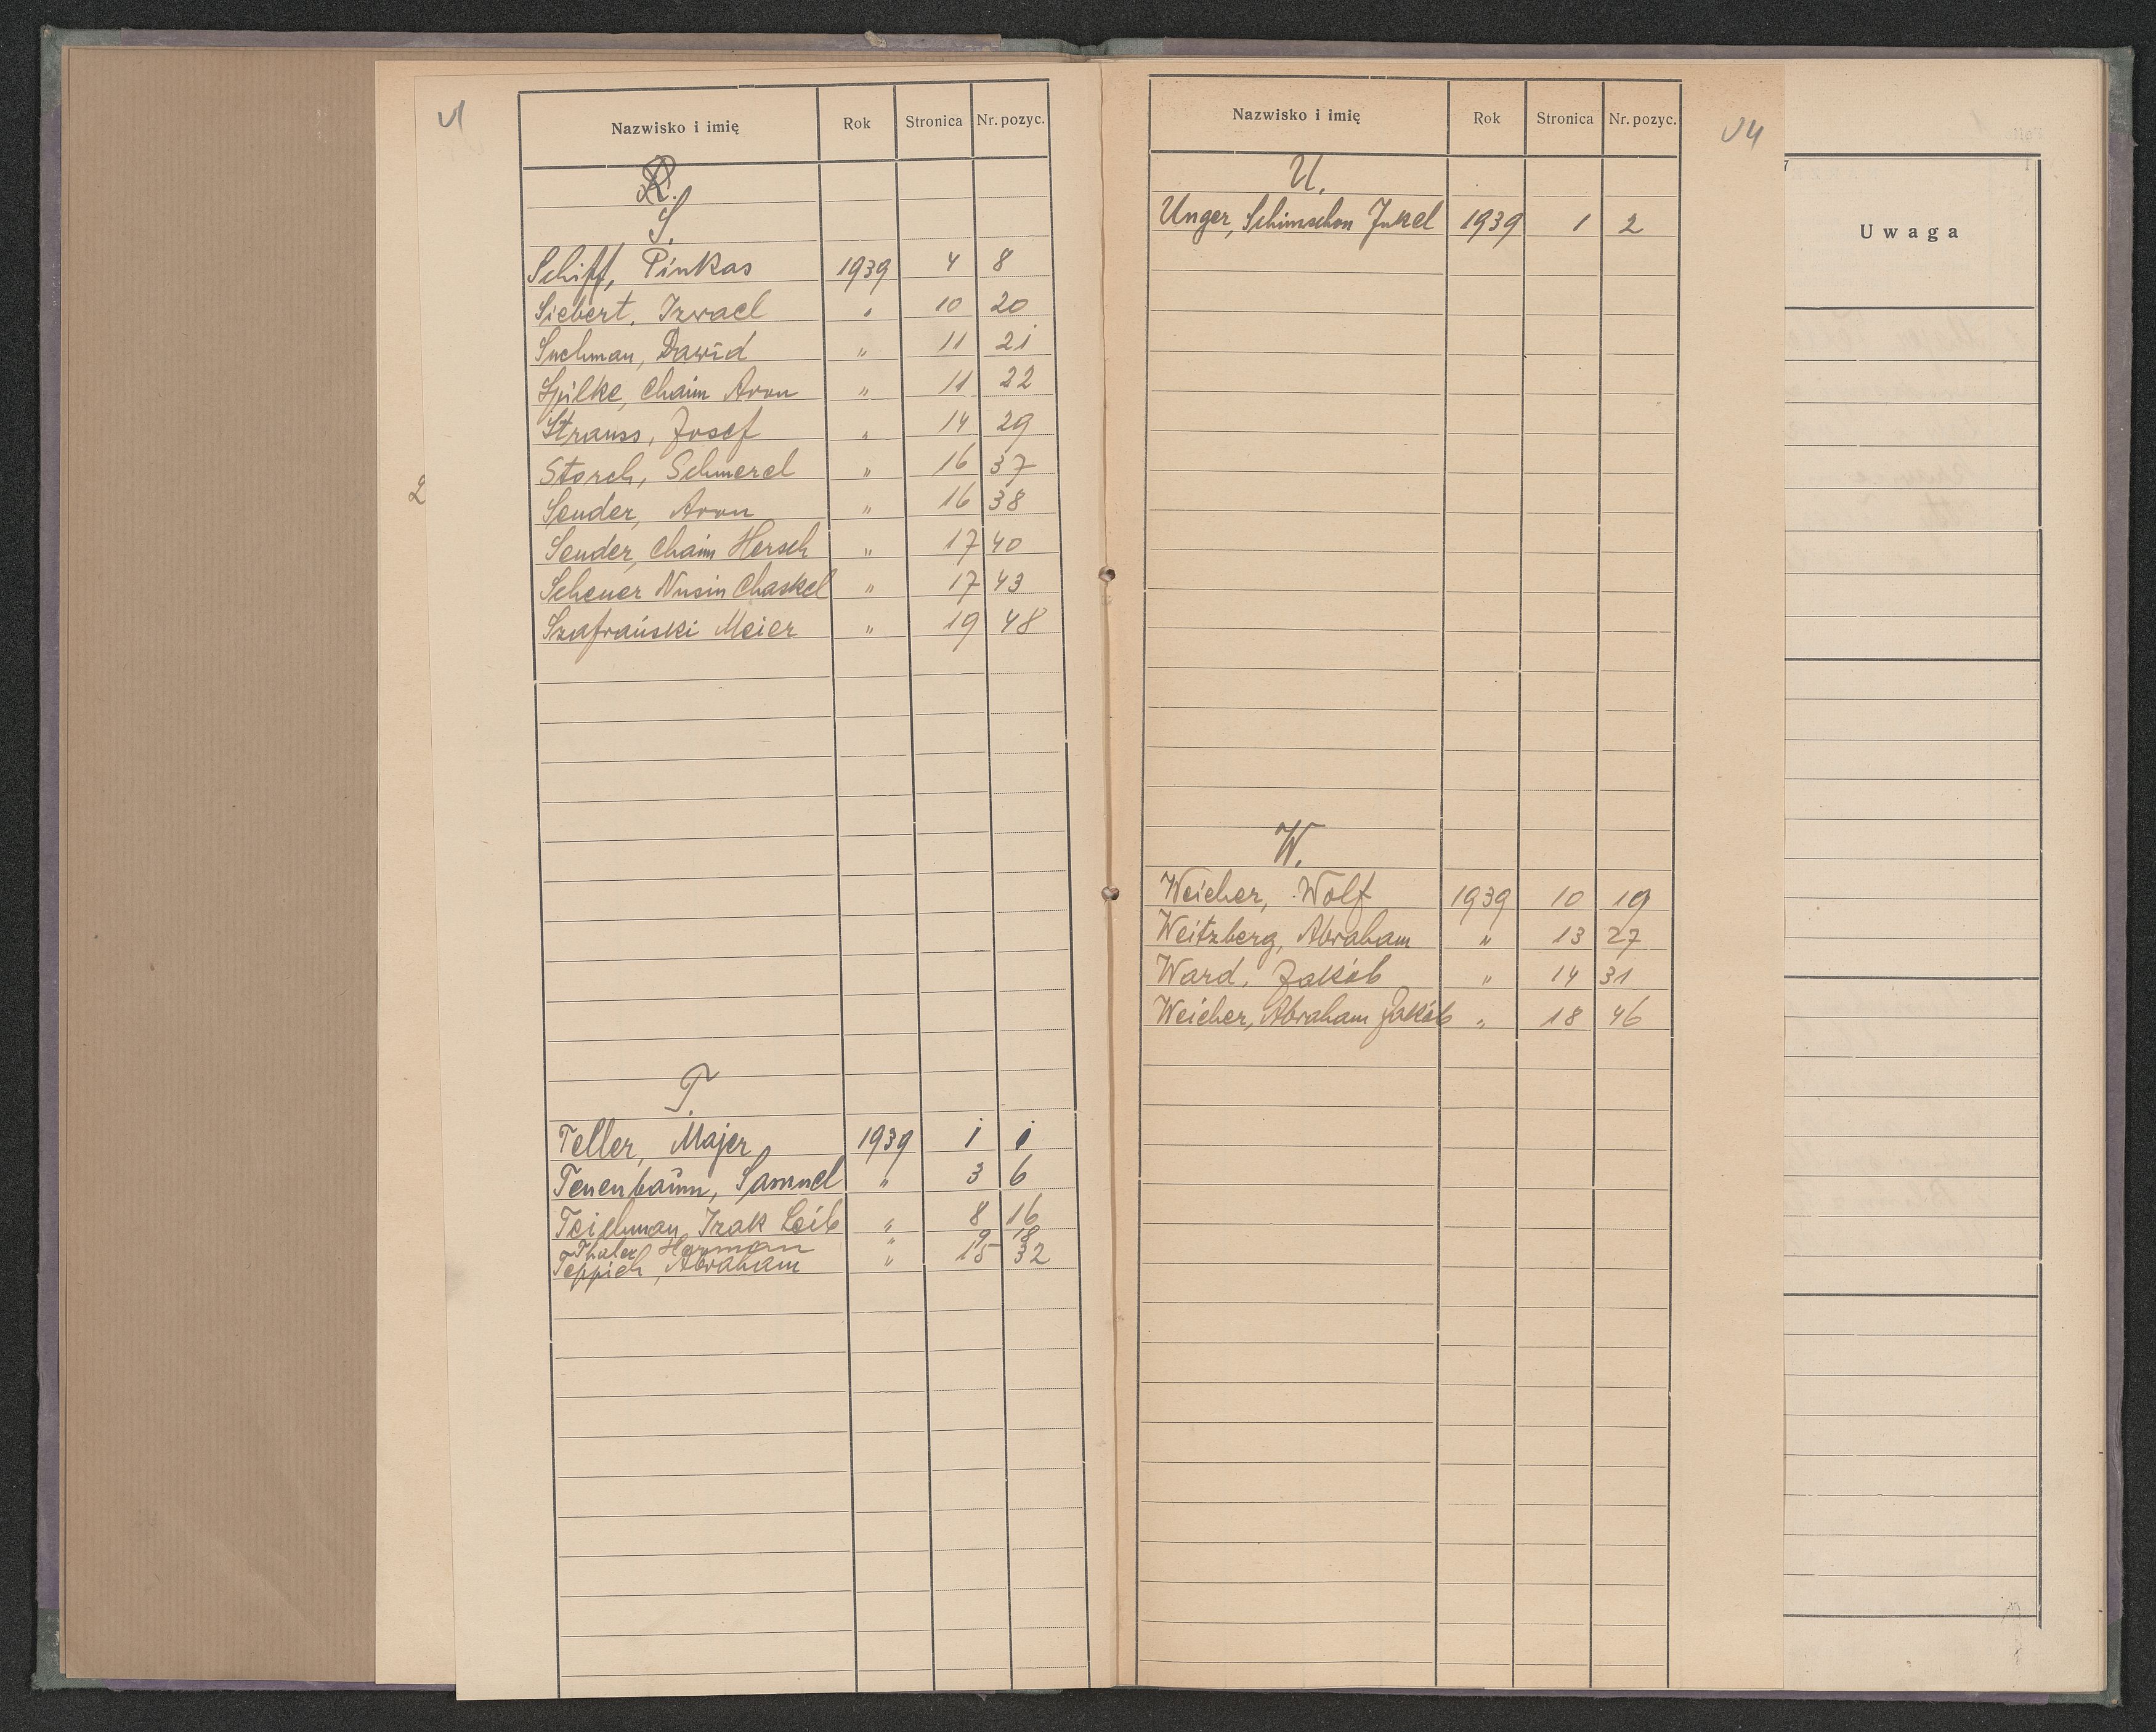 Nazwisko i imię Rok Stronica Nr. pozyc.
S.
Schiff, Pinkas 1939 4 8
Siebert, Izrael " 10 20
Suchman, Dawid " 11 21
Spilke, Chaim Aron " 11 22
Strauss, Josef " 14 29
Storch, Schmerel " 16 37
Sender, Aron " 16 38
Sender, Chaim Hersch " 17 40
Scheuer Nusin Chaskel " 17 43
Szafrański Meier " 19 48
T.
Teller, Majer 1939 1 1
Tenenbaum, Samuel " 3 6
Teichman, Izak Leib " 8 16
Thaler, Herman " 9 18
Teppich, Abraham " 15 32
2
Nazwisko i imię Rok Stronica Nr. pozyc.
U.
Unger, Schimschon Jukel 1939 1 2
W.
Weicher, Wolf 1939 10 19
Weitzberg, Abraham " 13 27
Ward, Jakób " 14 31
Weicher, Abraham Jakób " 18 46
Uwaga